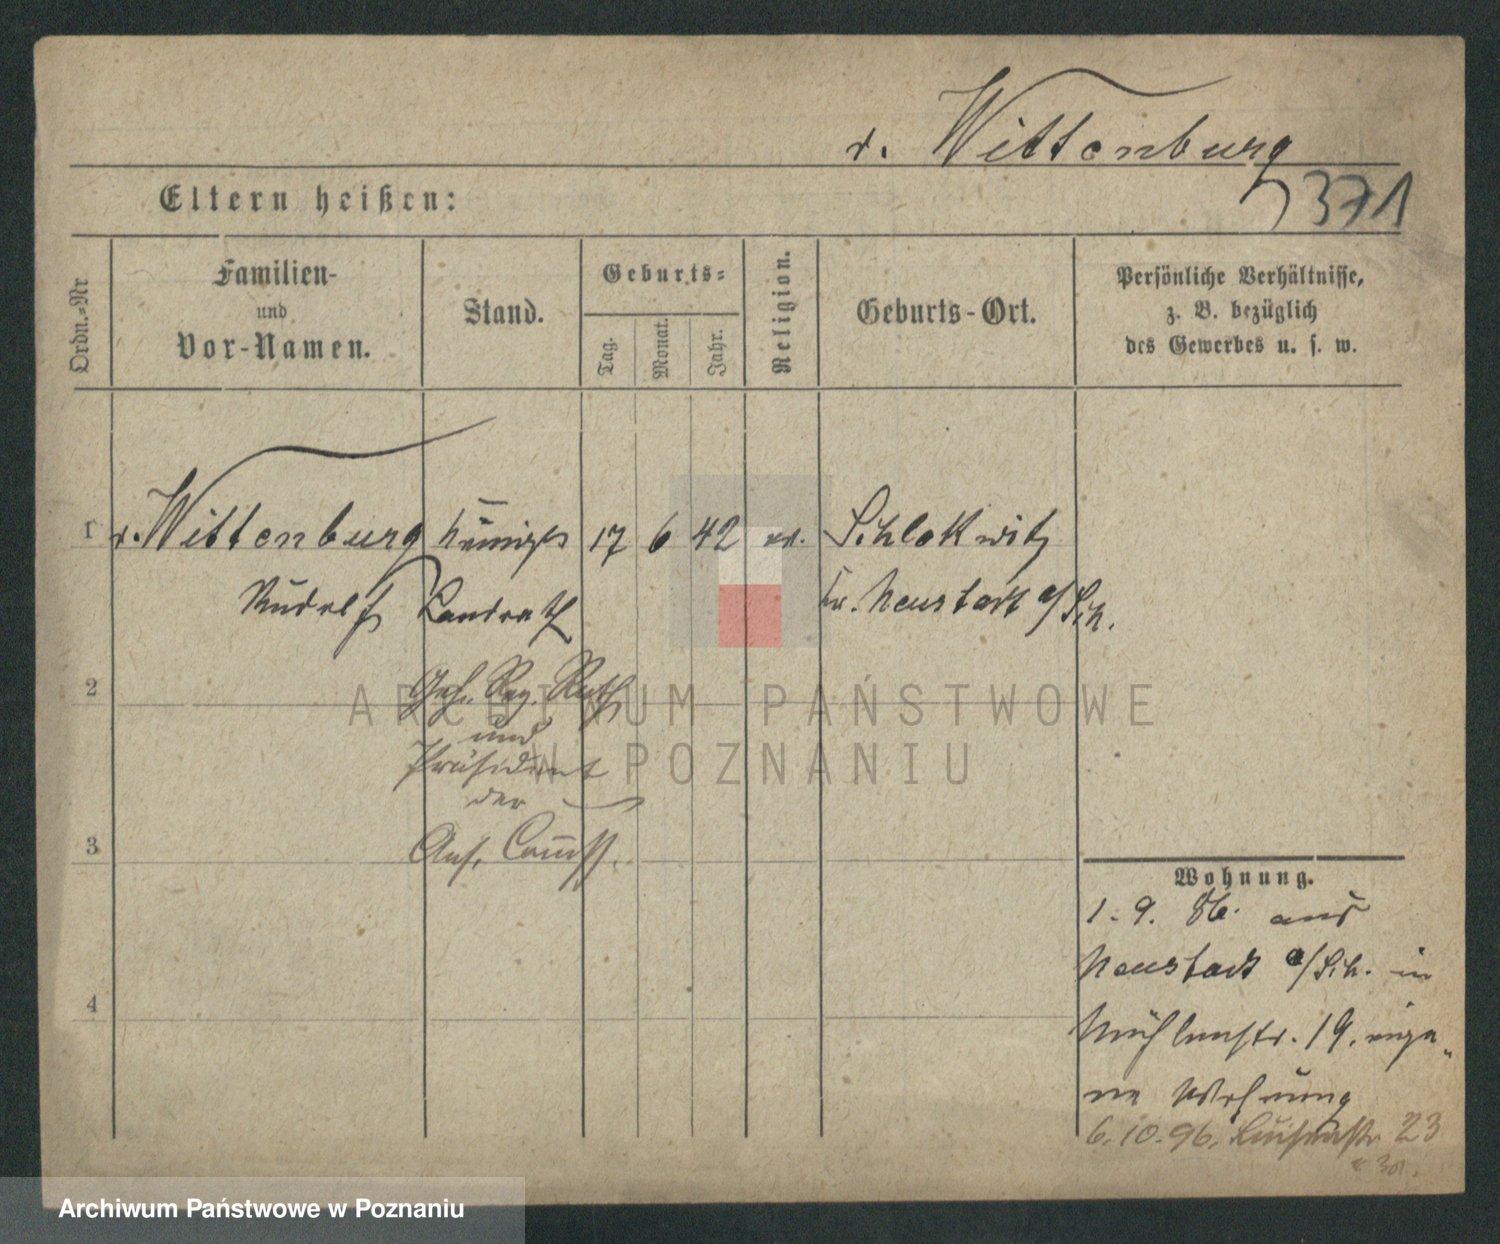 v. Wittenburg
371
Eltern heißen:
Ordn.=Nr
Familien-
und
Vor-Namen.
Stand.
Geburts=
Tag.
Monat.
Jahr.
Religion.
Geburts-Ort.
Persönliche Verhältnisse,
z. B. bezüglich
des Gewerbes u. s. w.
1 v. Wittenburg Königl. 17 6 42 ev. Schlokwitz
Rudolf Landrath Kr. Neustadt o/Sch.
2
Geh. Reg. Rath
und
Präsident
der
3
Ans. Commiss.
4
Wohnung.
1. 9. 86. aus
Neustadt o/Sch. in
Mühlenstr. 19. eige„
ne Wohnung
6. 10. 96. Luisenstr 23
ARCHIWUM PAŃSTWOWE
W POZNANIU
Archiwum Państwowe w Poznaniu